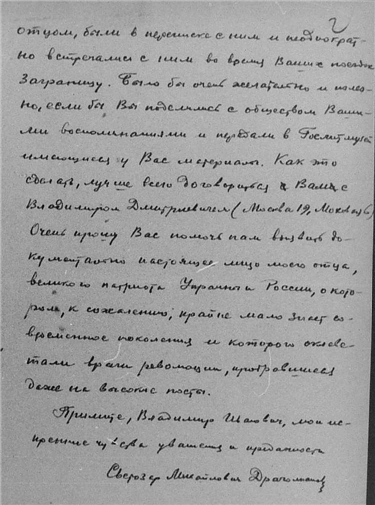 2
отцом, были в переписке с ним и неоднократ-
но встречались с ним во время Ваших поездок
Заграницу. Было бы очень желательно и полез-
но, если бы Вы поделились с обществом Ваши-
ми воспоминаниями и передали в Гослитмузей
имеющиеся у Вас материалы. Как это
сделать, лучше всего договориться Вам с
Владимиром Дмитриевичем (Москва 19, Моховая 6)
Очень прошу Вас помочь нам выявить до-
кументально настоящее лицо моего отца,
великого патриота Украины и России, о кото-
ром, к сожалению, крайне мало знает со-
временное поколение и которого оклеве-
тали враги революции, пробравшиеся
даже на высокие посты.
Примите, Владимир Иванович, мои ис-
кренние чувства уважения и преданности
Светозар Михайлович Драгоманов